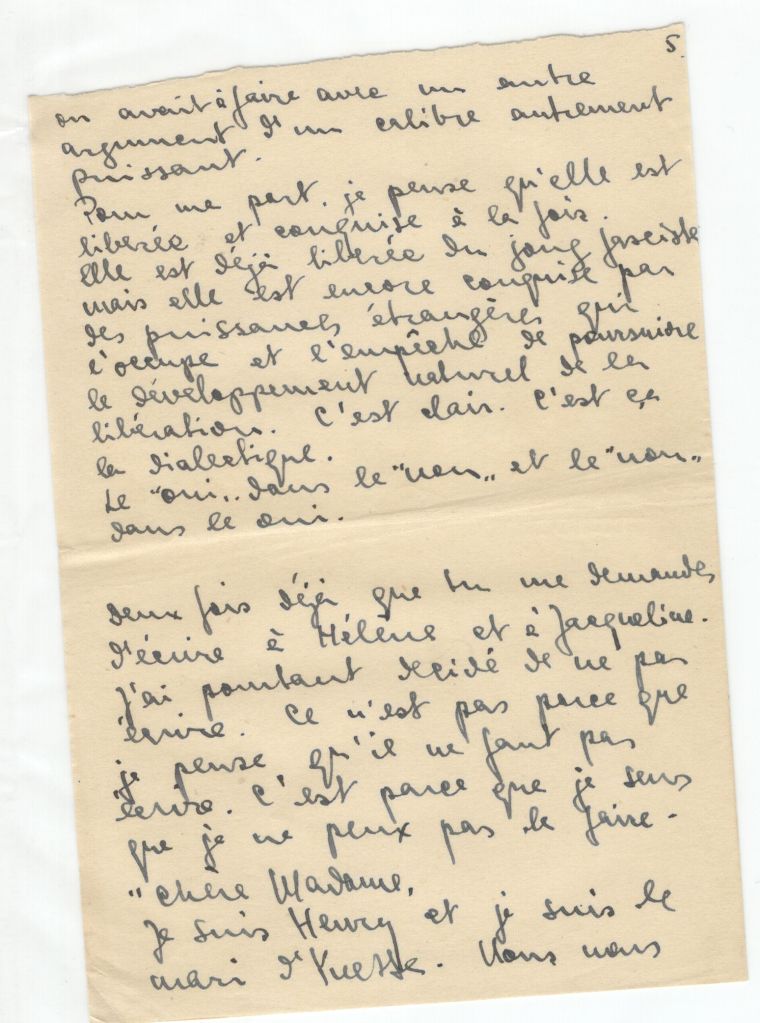 5.
on avait à faire avec un autre
argument d'un calibre autrement
puissant.
Pour ma part, je pense qu'elle est
liberée et conquise à la fois.
Elle est déjà liberée du joug fasciste
mais elle est encore conquise par
des puissances étrangères qui
l'occupe et l'empêche de poursuivre
le développement naturel de la
libération. C'est clair. C'est ça
la dialectique.
Le "oui" dans le "non" et le "non"
dans le oui.
deux fois déjà que tu me demandes
d'écrire à Hélène et à Jacqueline.
J'ai pourtant decidé de ne pas
écrire. Ce n'est pas parce que
je pense qu'il ne faut pas
écrire. C'est parce que je sens
que je ne peux pas le faire.
"Chère Madame,
Je suis Henry et je suis le
mari d'Yvette. Nous nous